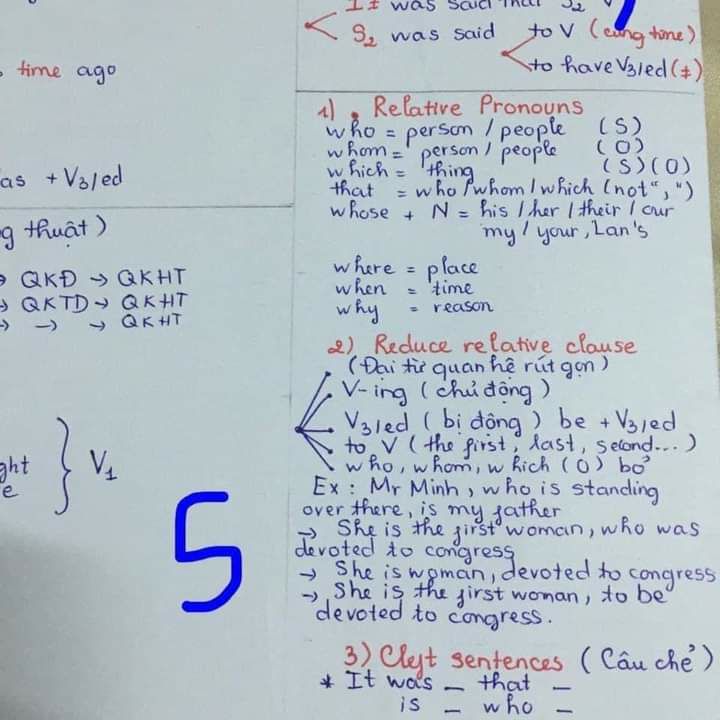 It was said that S2 V
S2 was said to V (cùng time)
to have V3/ed (≠)
time ago
as + V3/ed
g thuật)
→ QKĐ → QKHT
→ QKTD → QKHT
→ → → QKHT
ght } V1
e
5
1) . Relative Pronouns
who = person / people (S)
whom = person / people (O)
which = thing (S) (O)
that = who / whom / which (not ",")
whose + N = his / her / their / our
my / your, Lan's
where = place
when = time
why = reason
2) Reduce relative clause
(Đại từ quan hệ rút gọn)
V-ing (chủ động)
V3/ed (bị động) be + V3/ed
to V (the first, last, second...)
who, whom, which (O) bỏ
Ex: Mr Minh, who is standing
over there, is my father
→ She is the first woman, who was
devoted to congress
→ She is woman, devoted to congress
→ She is the first woman, to be
devoted to congress.
3) Cleft sentences (Câu chẻ)
* It was _ that _
is _ who _